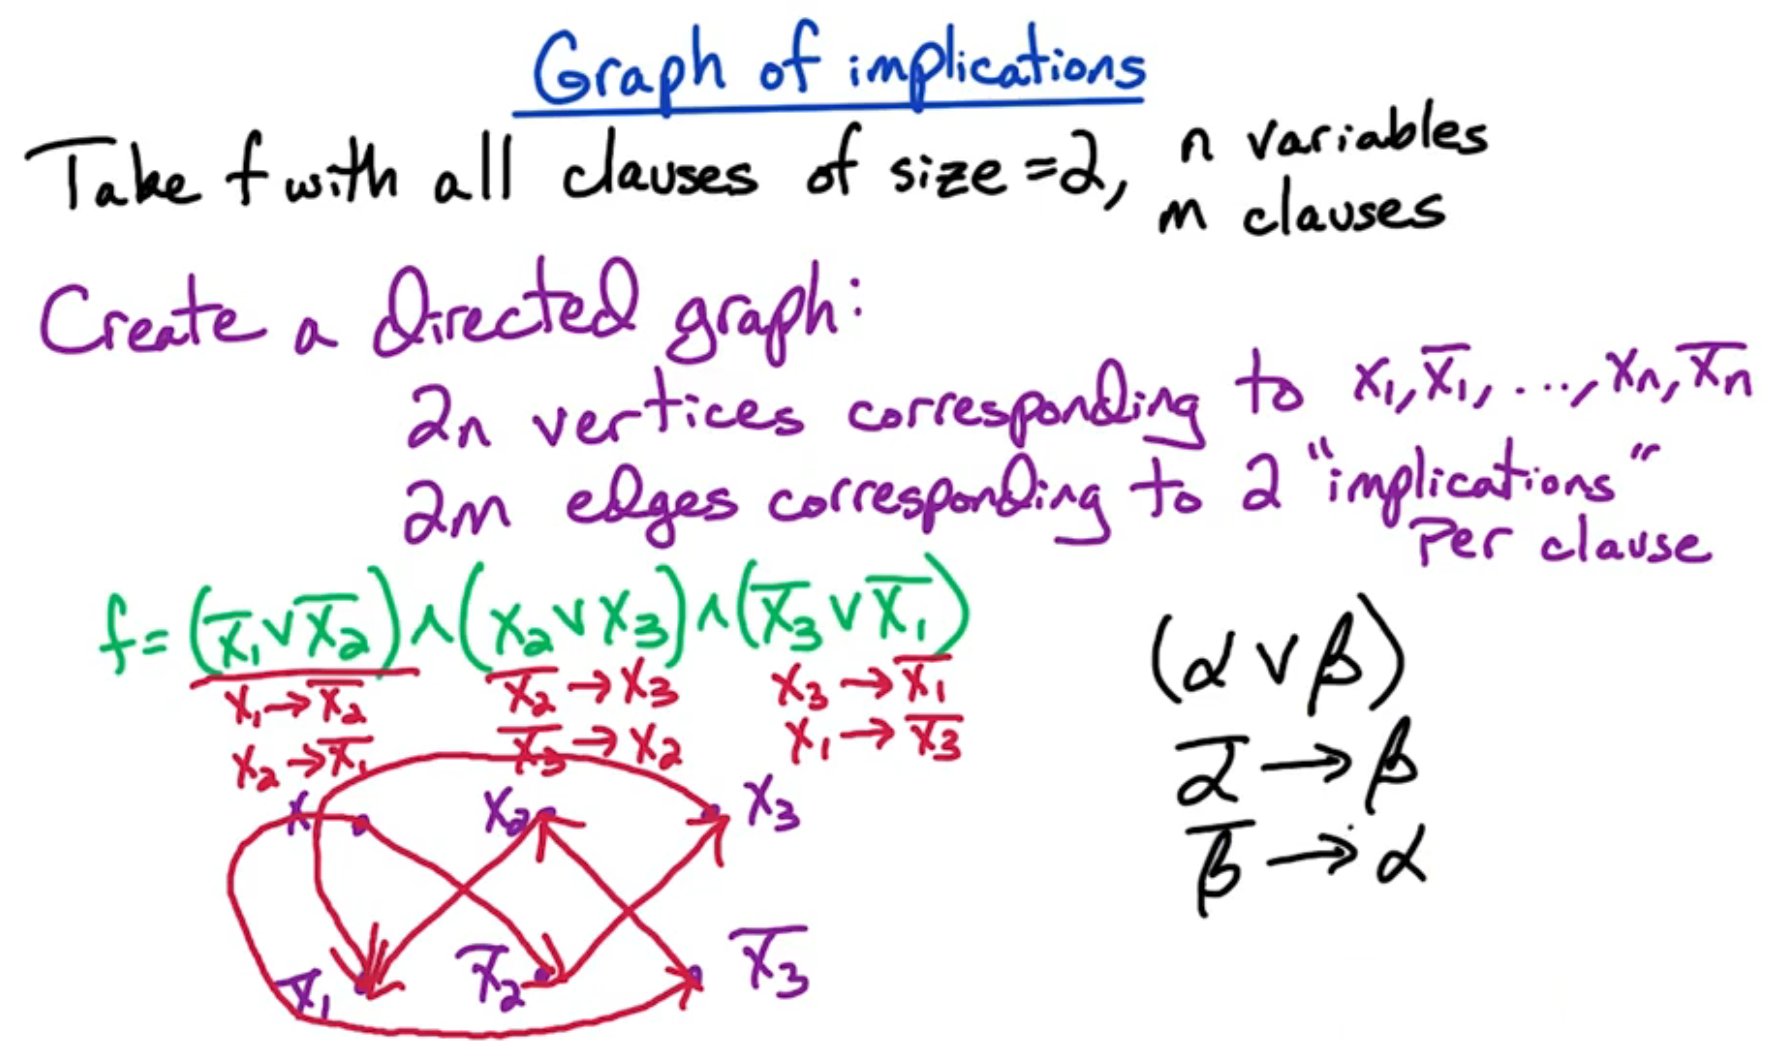 Graph of implications
Take f with all clauses of size =2, n variables
m clauses
Create a directed graph:
2n vertices corresponding to x₁, x̅₁, ..., xₙ, x̅ₙ
2m edges corresponding to 2 "implications"
Per clause
f = (x̅₁ ∨ x̅₂) ∧ (x₂ ∨ x₃) ∧ (x̅₃ ∨ x̅₁)
x₁ → x̅₂ x̅₂ → x₃ x₃ → x̅₁
x₂ → x̅₁ x̅₃ → x₂ x₁ → x̅₃
(α ∨ β)
α̅ → β
β̅ → α
x x₂ x₃
x̅₁ x̅₂ x̅₃